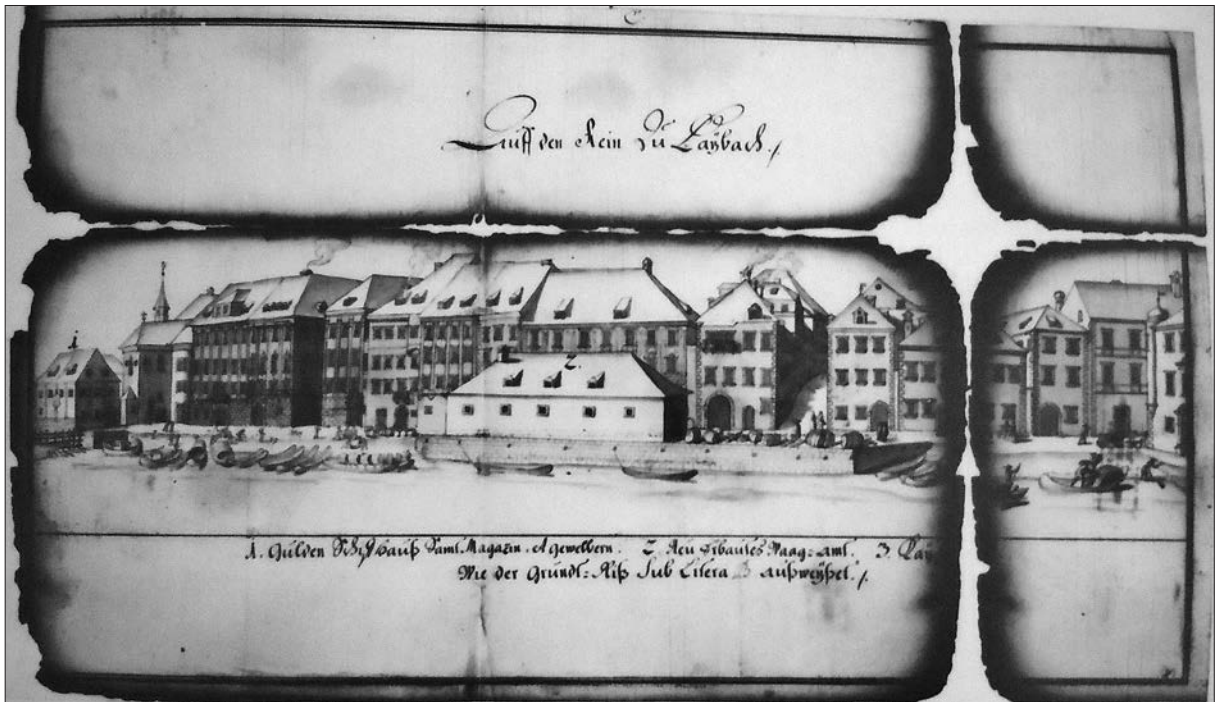 C
Auff den Rein Zu Laybach ./.
2
1. Gülden Schif hauß Samt Magazin. et Gewelbern. 2. Neu Erbautes Waag=amt. 3.
Wie der Grundt=Riß Sub Litera B außweyßet ./.